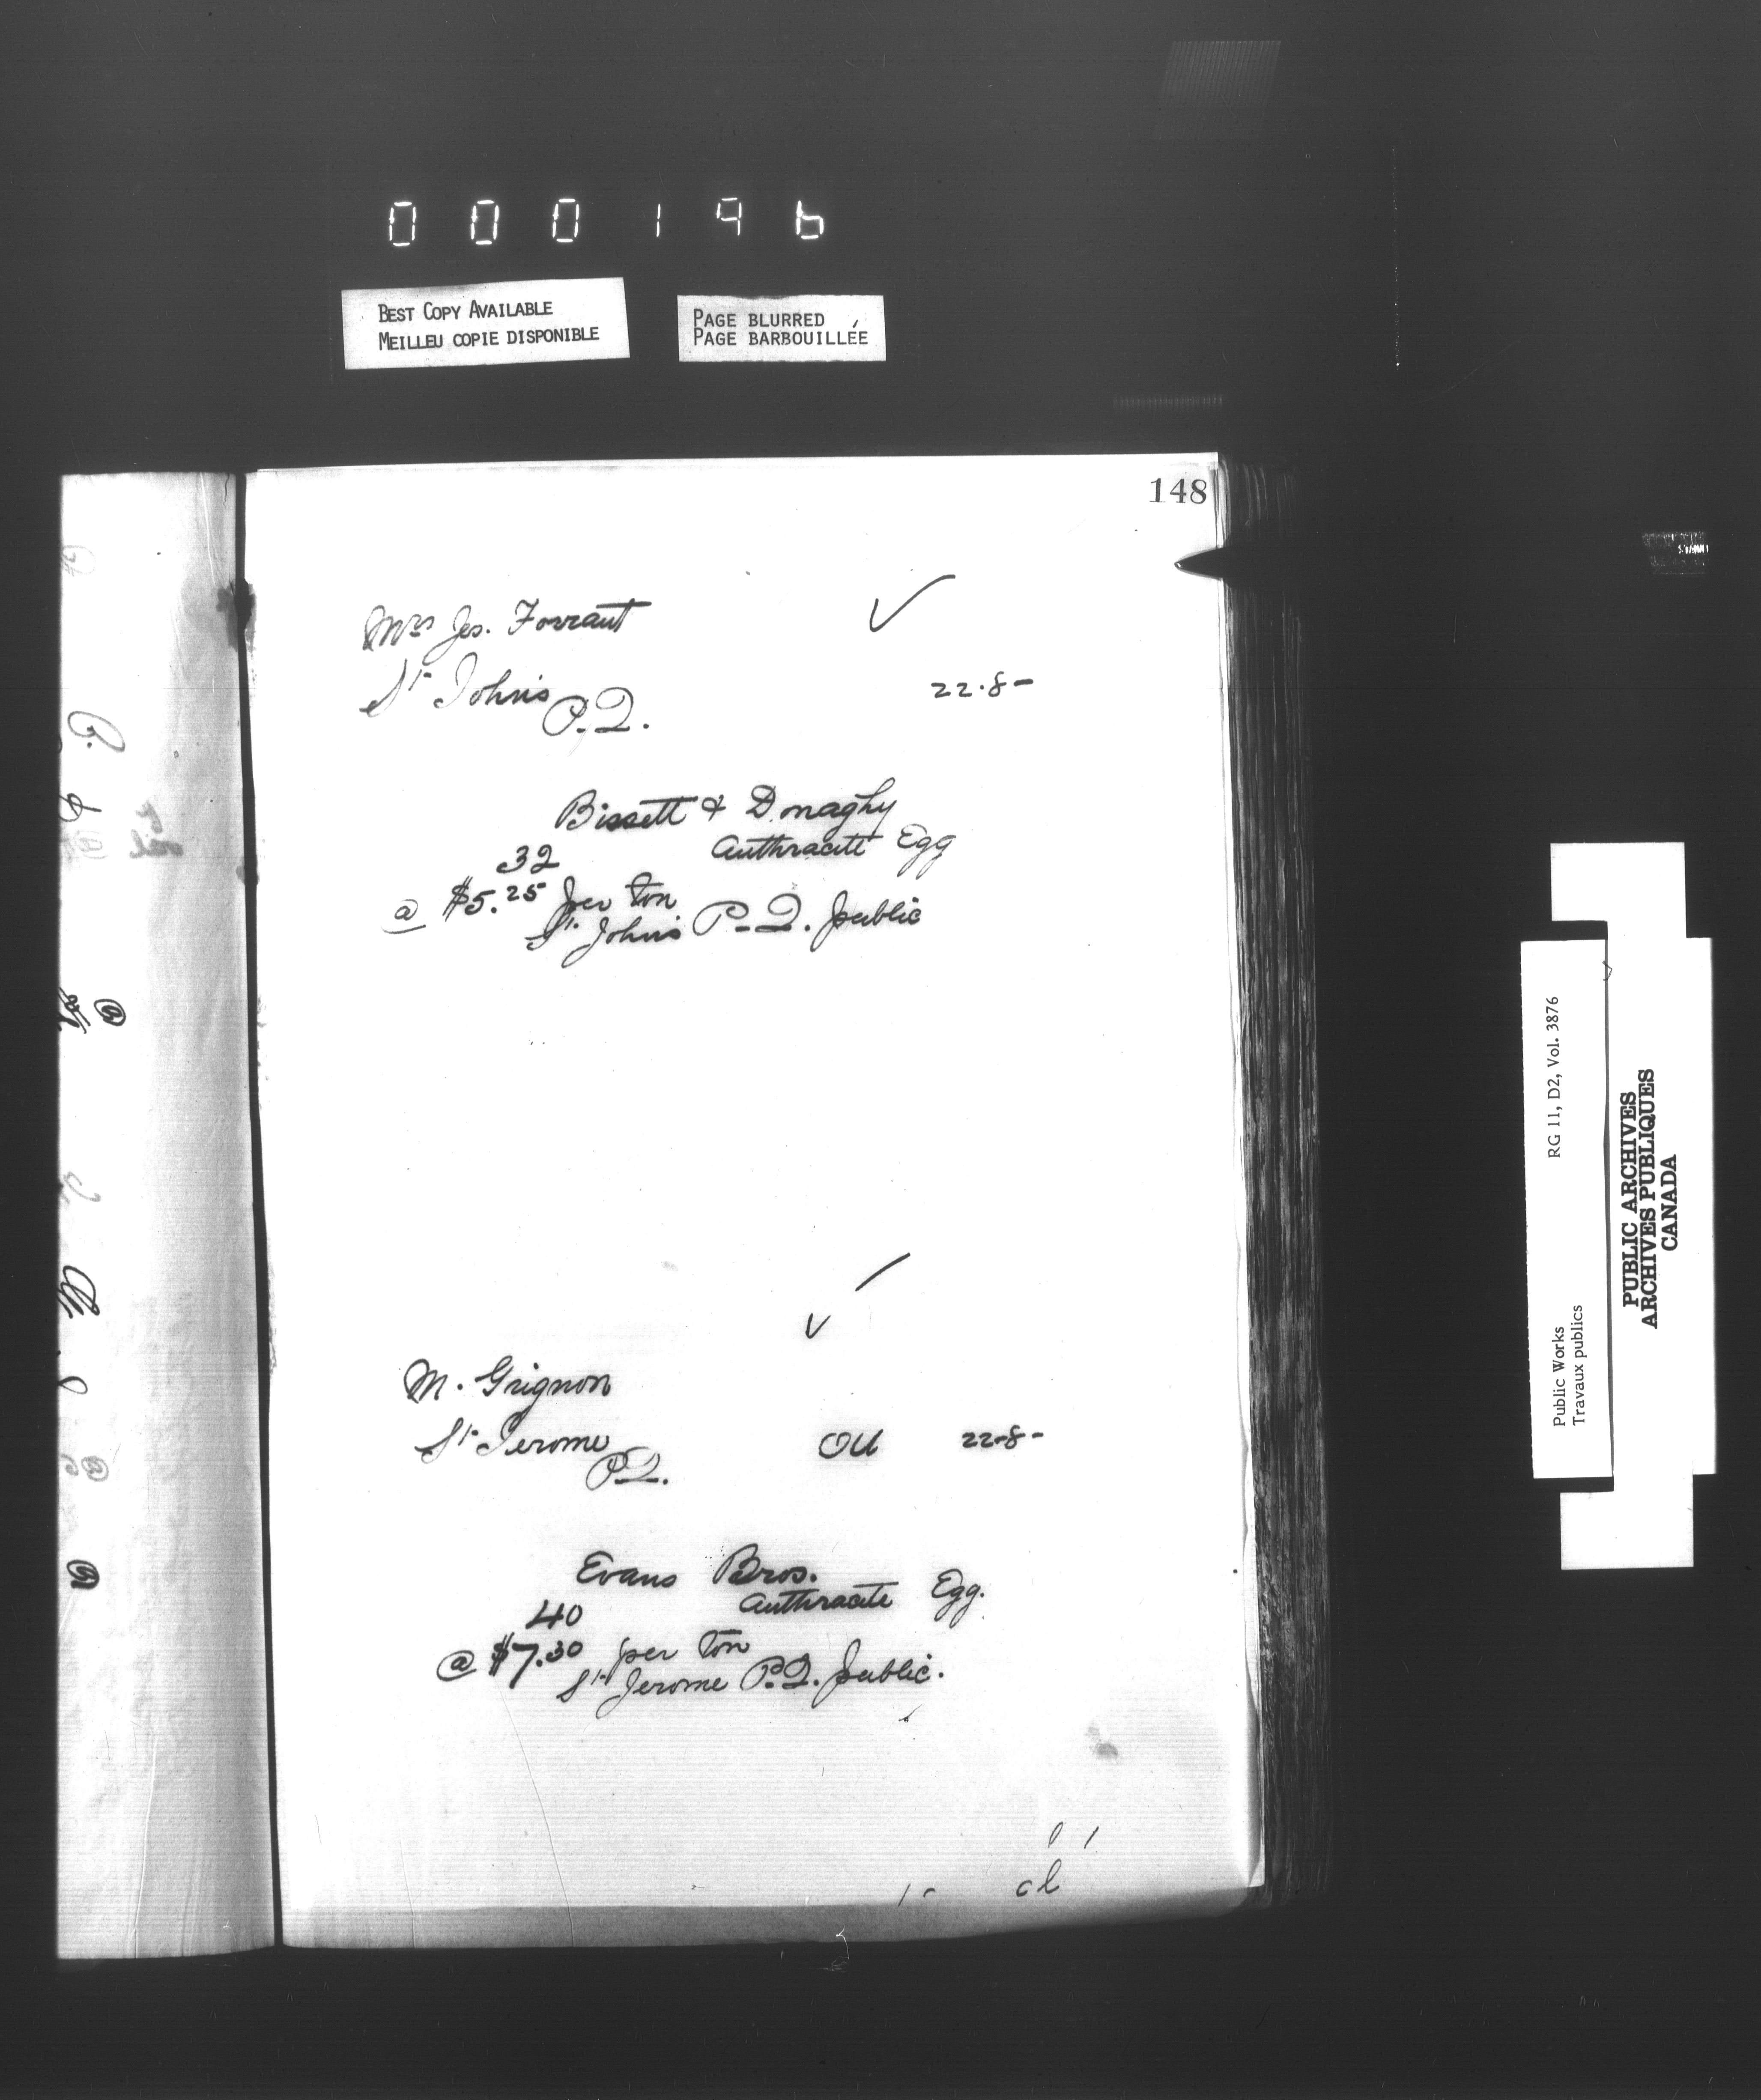 000196
BEST COPY AVAILABLE
MEILLEU COPIE DISPONIBLE
PAGE BLURRED
PAGE BARBOUILLÉE
148
Mrs Jos. Forrant
St Johns
P.Q.
22-8-
Bissett & Donaghy
32 Anthracite Egg
@ $5.25 per ton
St. Johns P.Q. public
M. Grignon
St Jerome
P.Q.
OU 22-8-
Evans Bros.
40 Anthracite Egg.
@ $7.30 per ton
St Jerome P.Q. public.
Public Works
Travaux publics
RG 11, D2, Vol. 3876
PUBLIC ARCHIVES
ARCHIVES PUBLIQUES
CANADA